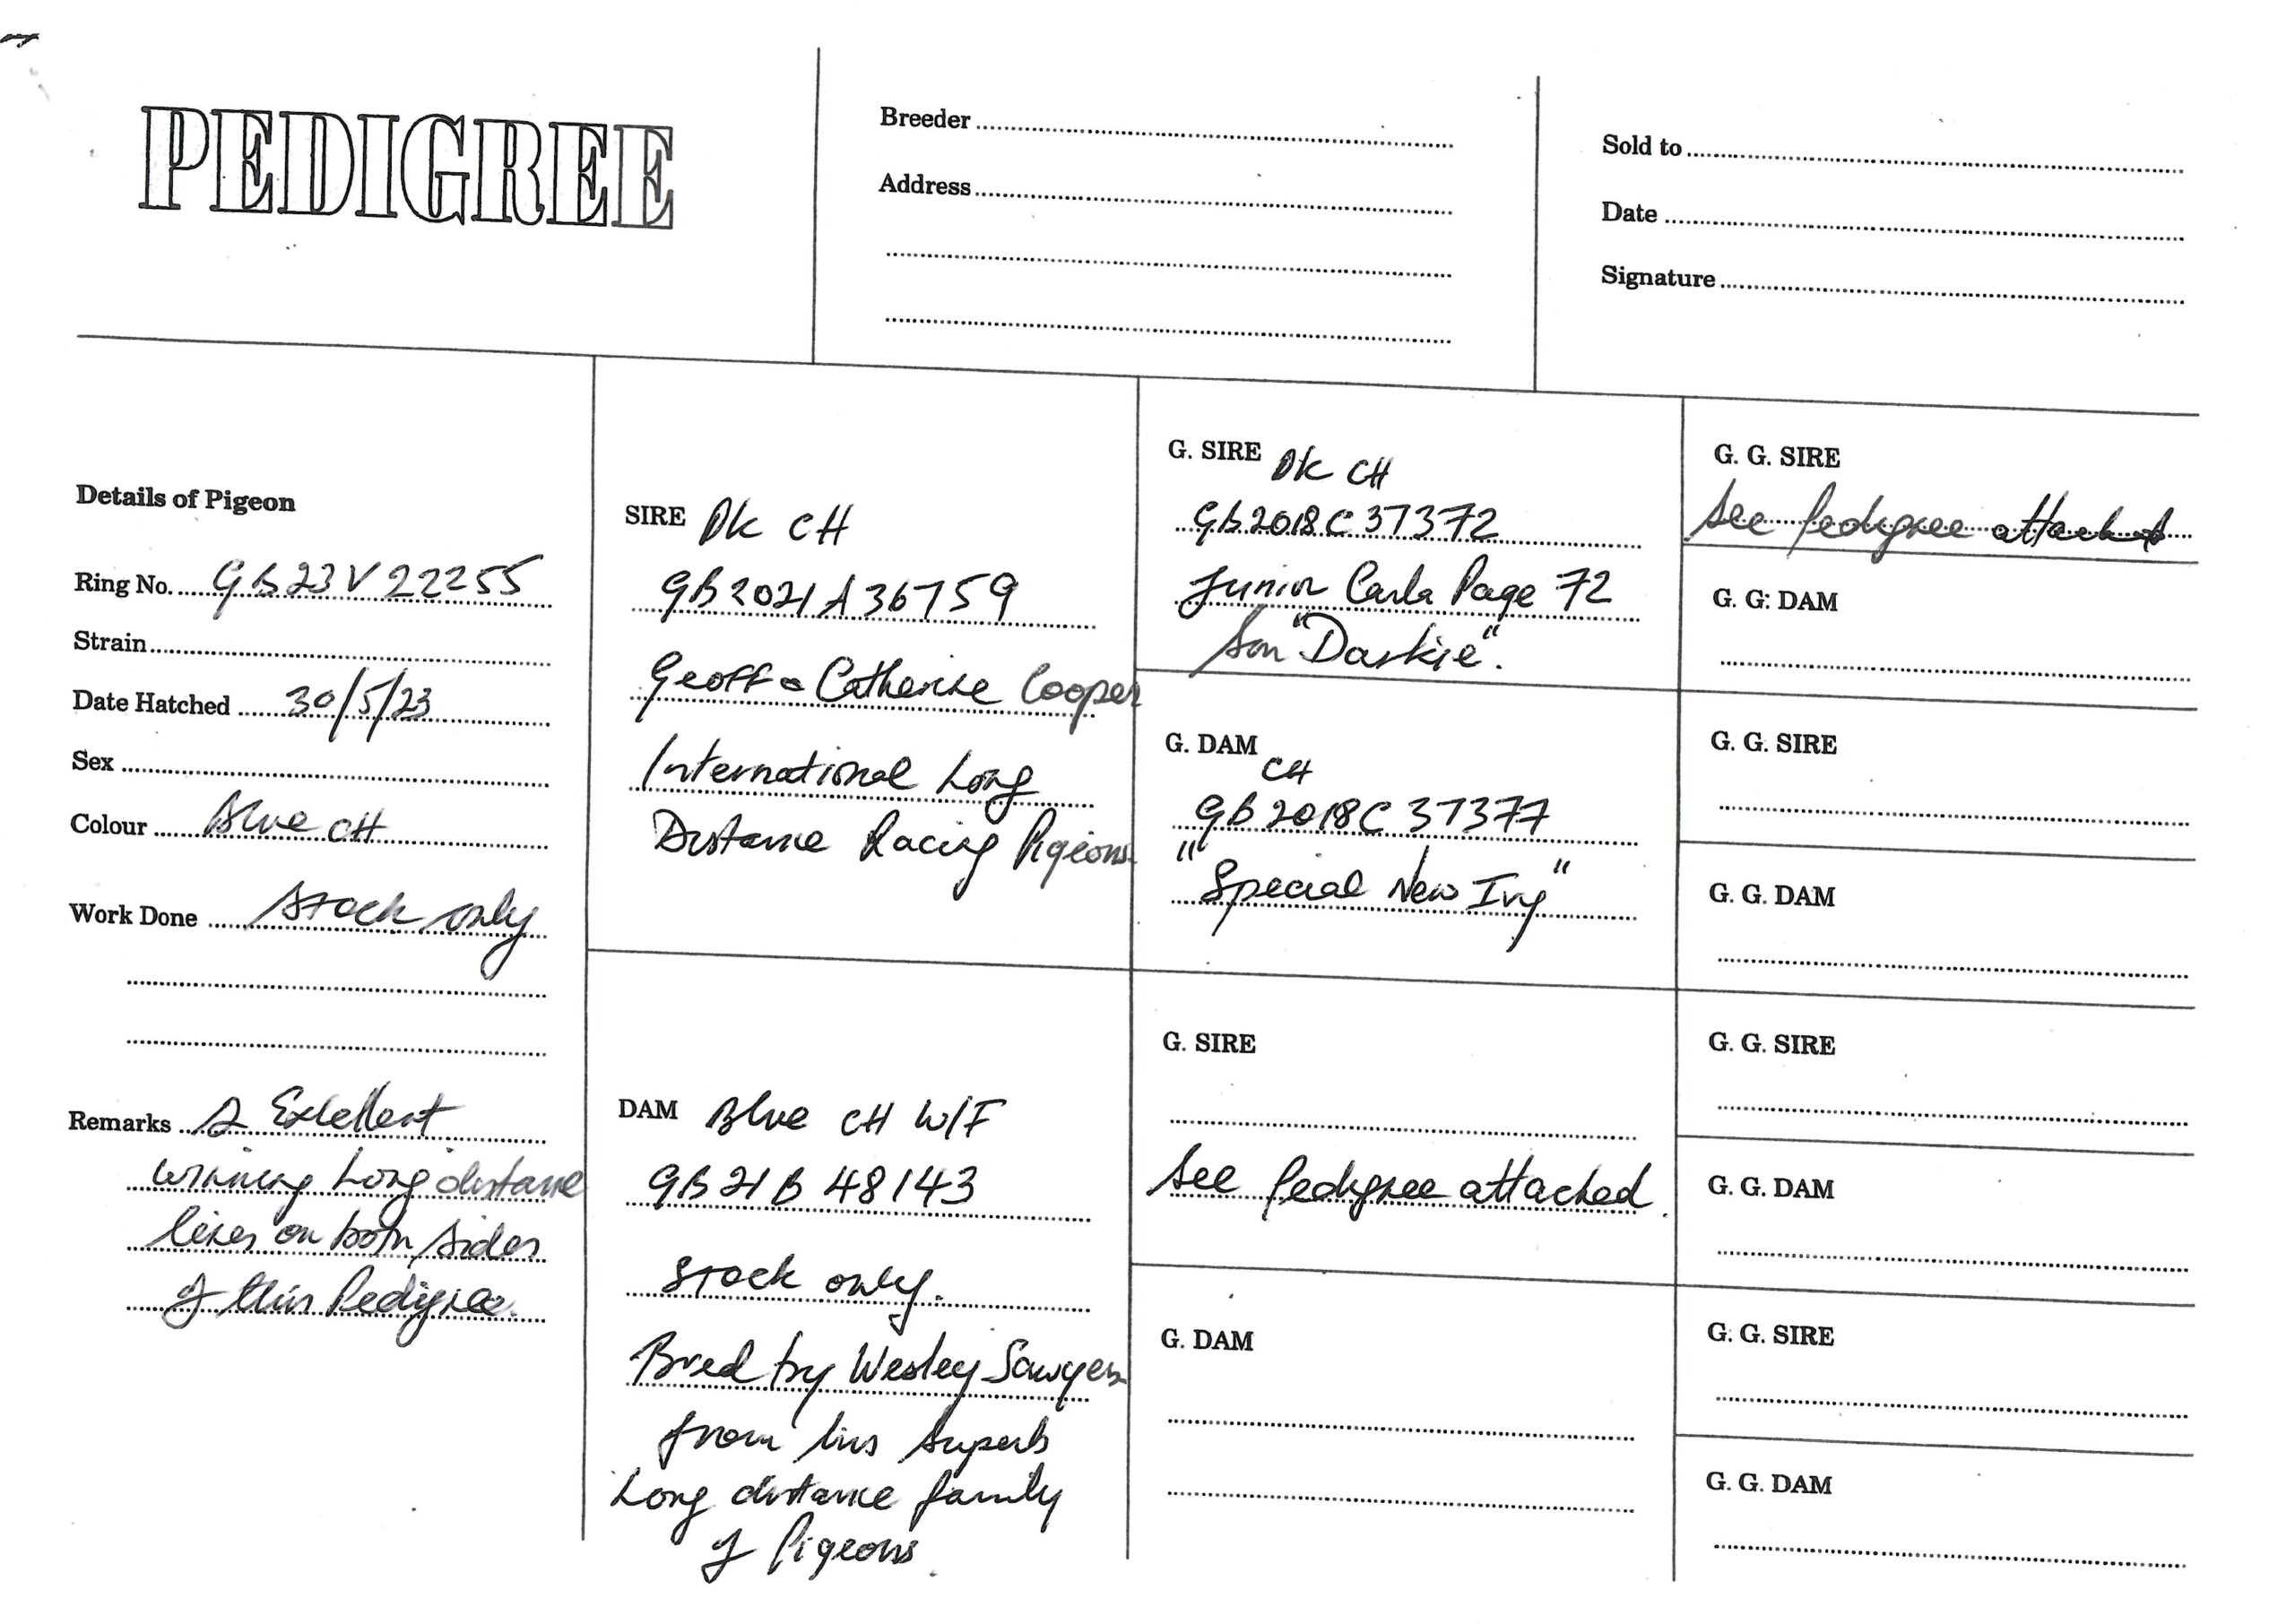 PEDIGREE
Breeder
Address
Sold to
Date
Signature
Details of Pigeon
Ring No. GB23V22255
Strain
Date Hatched 30/5/23
Sex
Colour Blue CH
Work Done Stock only
Remarks A Excellent
winning Long distance
lines on both sides
of this Pedigree.
SIRE DK CH
GB2021A36759
Geoff & Catherine Cooper
International Long
Distance Racing Pigeons
DAM Blue CH W/F
GB21B48143
Stock only.
Bred by Wesley Sawyers
from his Superb
Long distance family
of Pigeons.
G. SIRE DK CH
GB2018C37372
Junior Carla Page 72
Son "Darkie".
G. DAM
CH
GB2018C37377
"Special New Ivy"
G. SIRE
See Pedigree attached.
G. DAM
G. G. SIRE
See Pedigree attached
G. G. DAM
G. G. SIRE
G. G. DAM
G. G. SIRE
G. G. DAM
G. G. SIRE
G. G. DAM